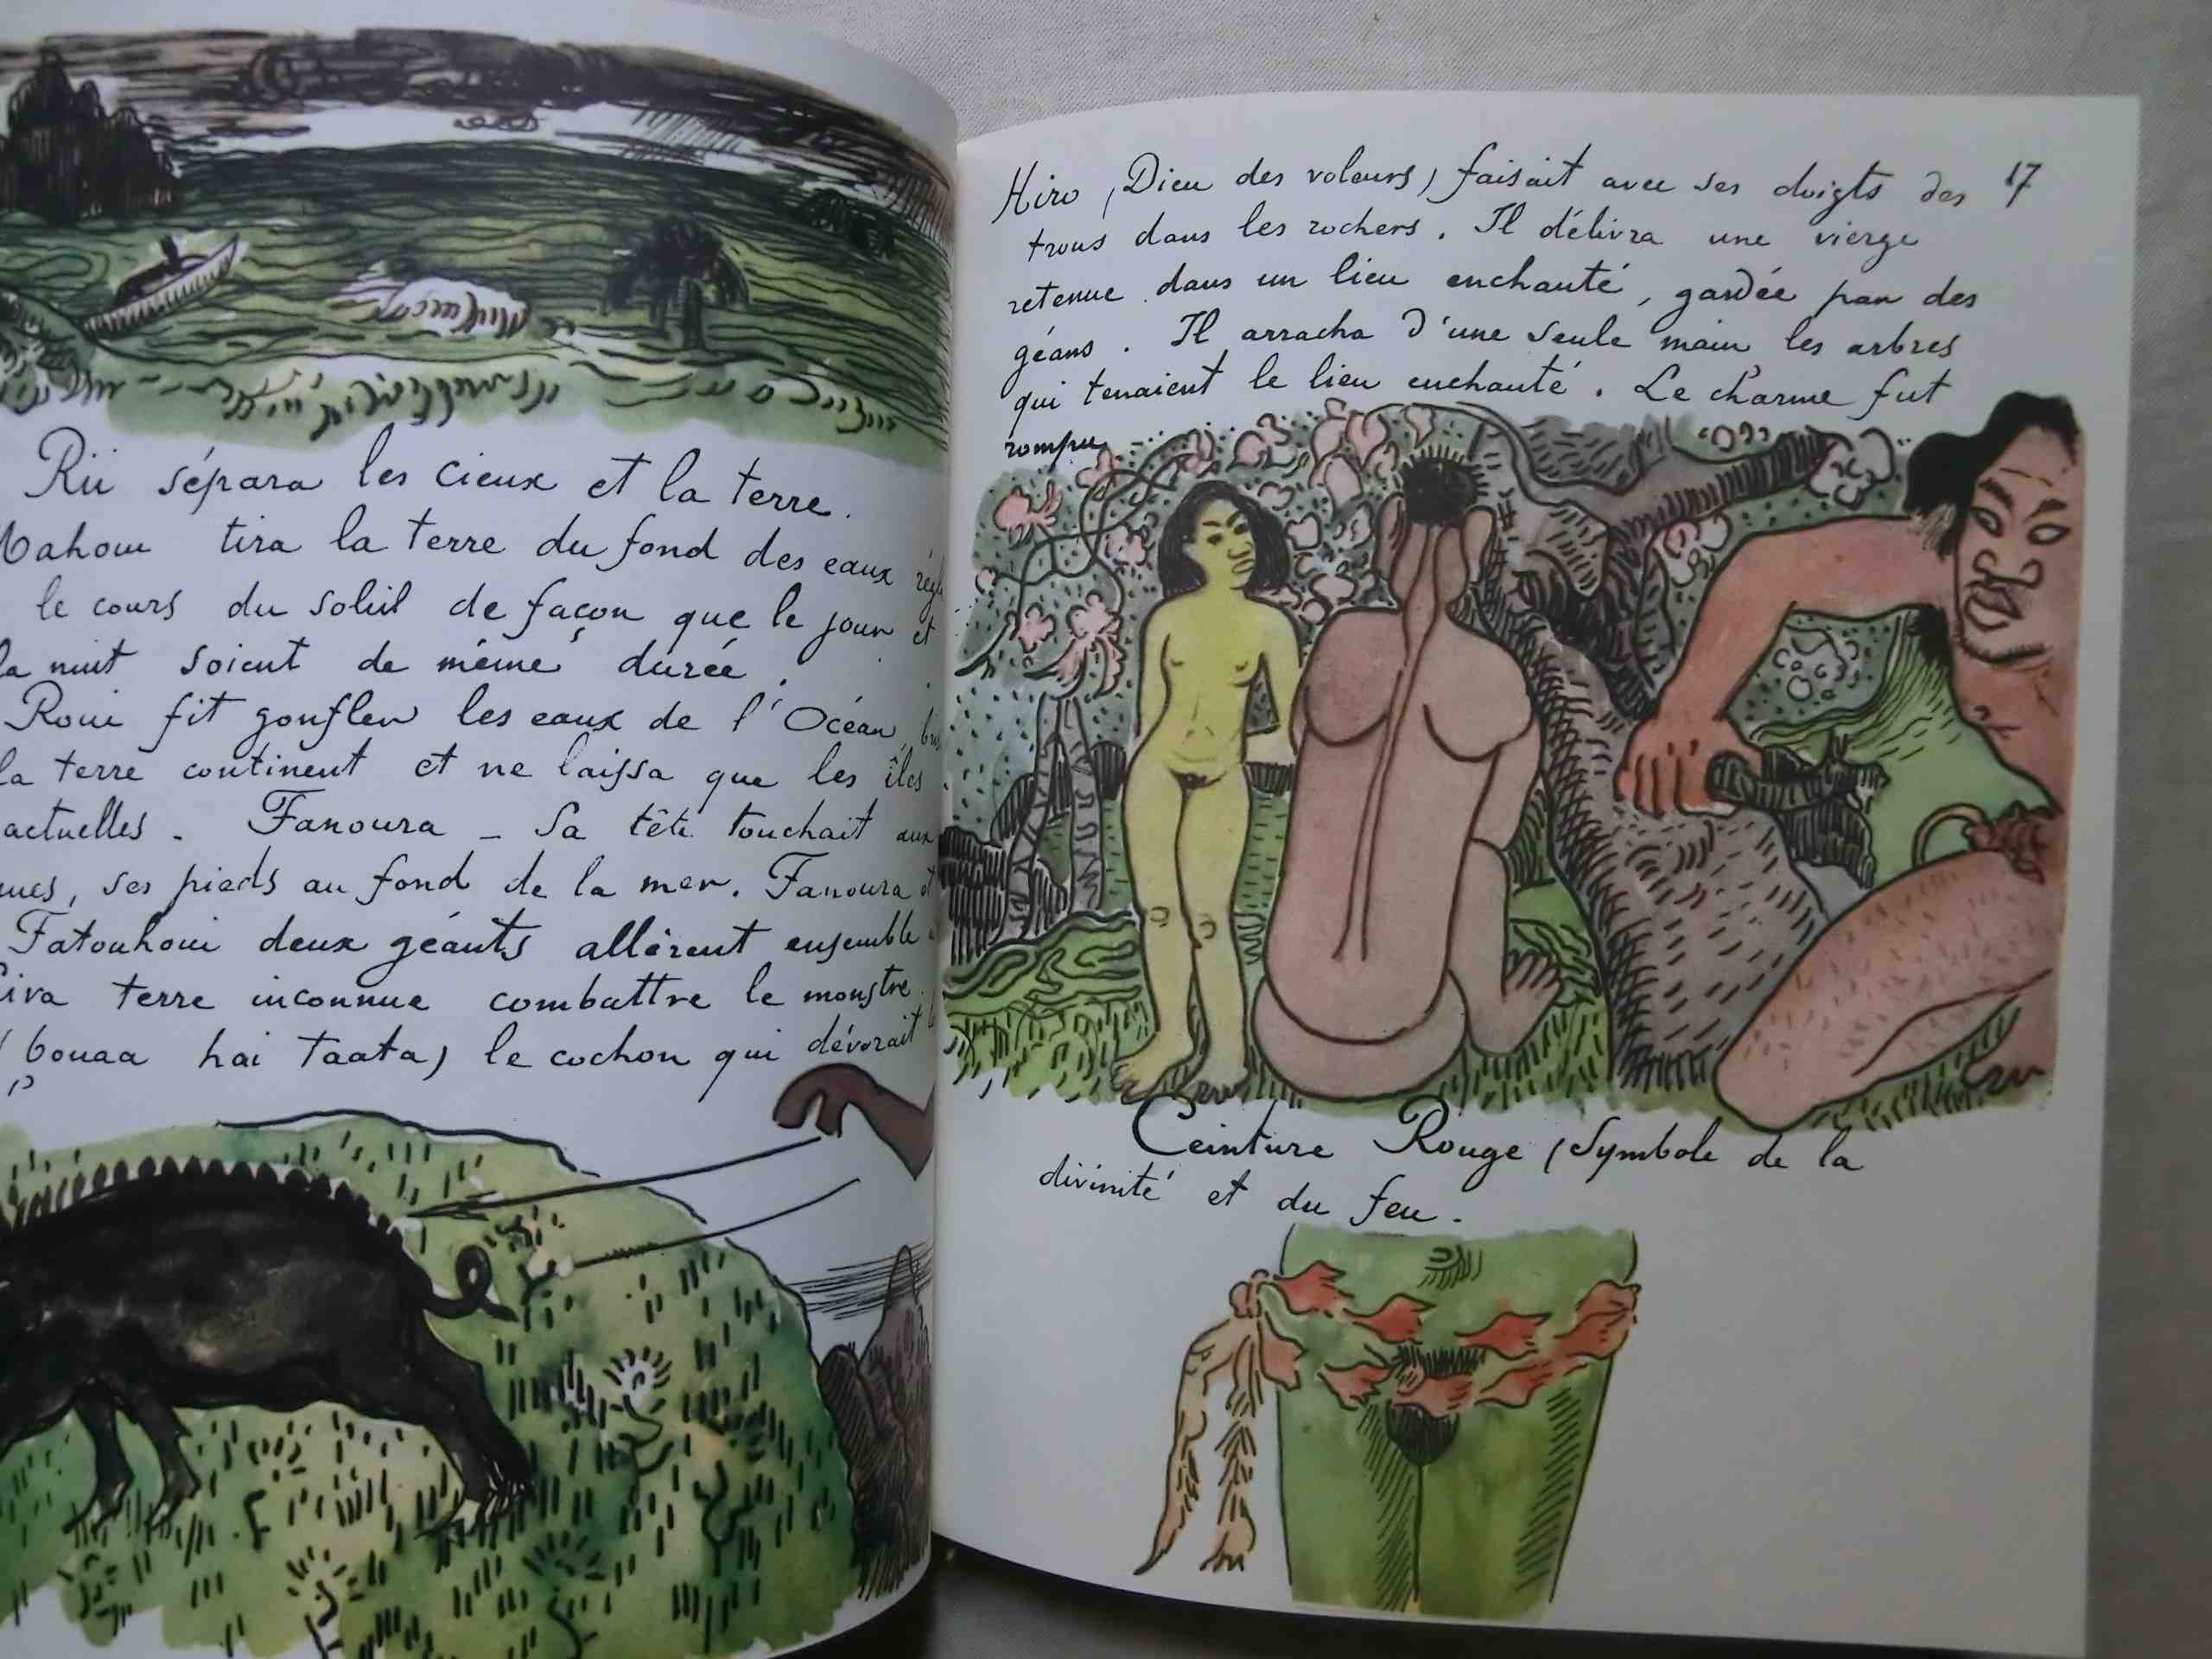 Rii sépara les cieux et la terre.
Mahoui tira la terre du fond des eaux
le cours du soleil de façon que le jour et
la nuit soient de même durée.
Roui fit gonfler les eaux de l'Océan,
la terre continent et ne laissa que les îles
actuelles. Fanoura - Sa tête touchait aux
nues, ses pieds au fond de la mer. Fanoura et
Fatouhoui deux géants allèrent ensemble
terre inconnue combattre le monstre
(bouaa hai taata) le cochon qui dévorait
17
Hiro (Dieu des voleurs) faisait avec ses doigts des
trous dans les rochers. Il délivra une vierge
retenue dans un lieu enchanté, gardée par des
géans. Il arracha d'une seule main les arbres
qui tenaient le lieu enchanté. Le charme fut
rompu
Ceinture Rouge (Symbole de la
divinité et du feu.